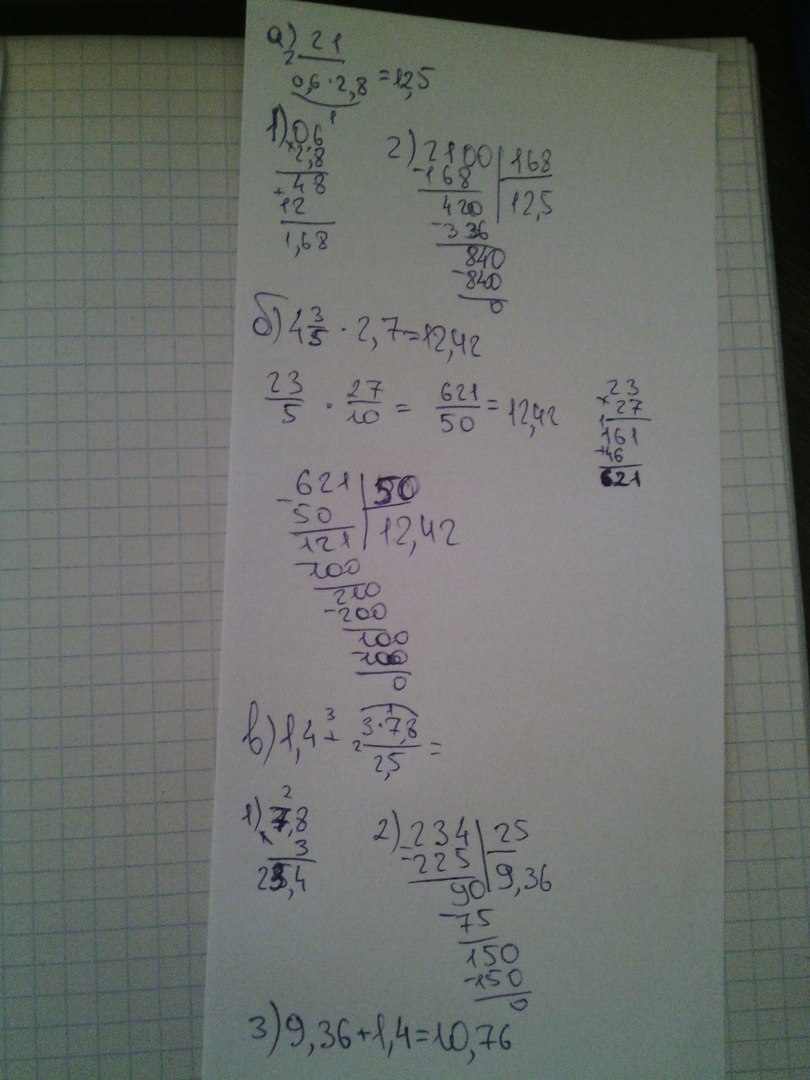 а) 2 21
0,6 · 2,8 = 12,5
1
1) 0,6
× 2,8
48
+ 12
1,68
2) 2100 | 168
- 168 | 12,5
420
- 336
840
- 840
0
б) 4 3/5 · 2,7 = 12,42
23/5 · 27/10 = 621/50 = 12,42
23
× 27
1 161
+ 46
621
621 | 50
- 50 | 12,42
121
- 100
210
- 200
100
- 100
0
в) 1,4 +3 2 3 ·1 7,8 / 2,5 =
1) 2
7,8
× 3
23,4
2) 234 | 25
- 225 | 9,36
90
- 75
150
- 150
0
3) 9,36 + 1,4 = 10,76